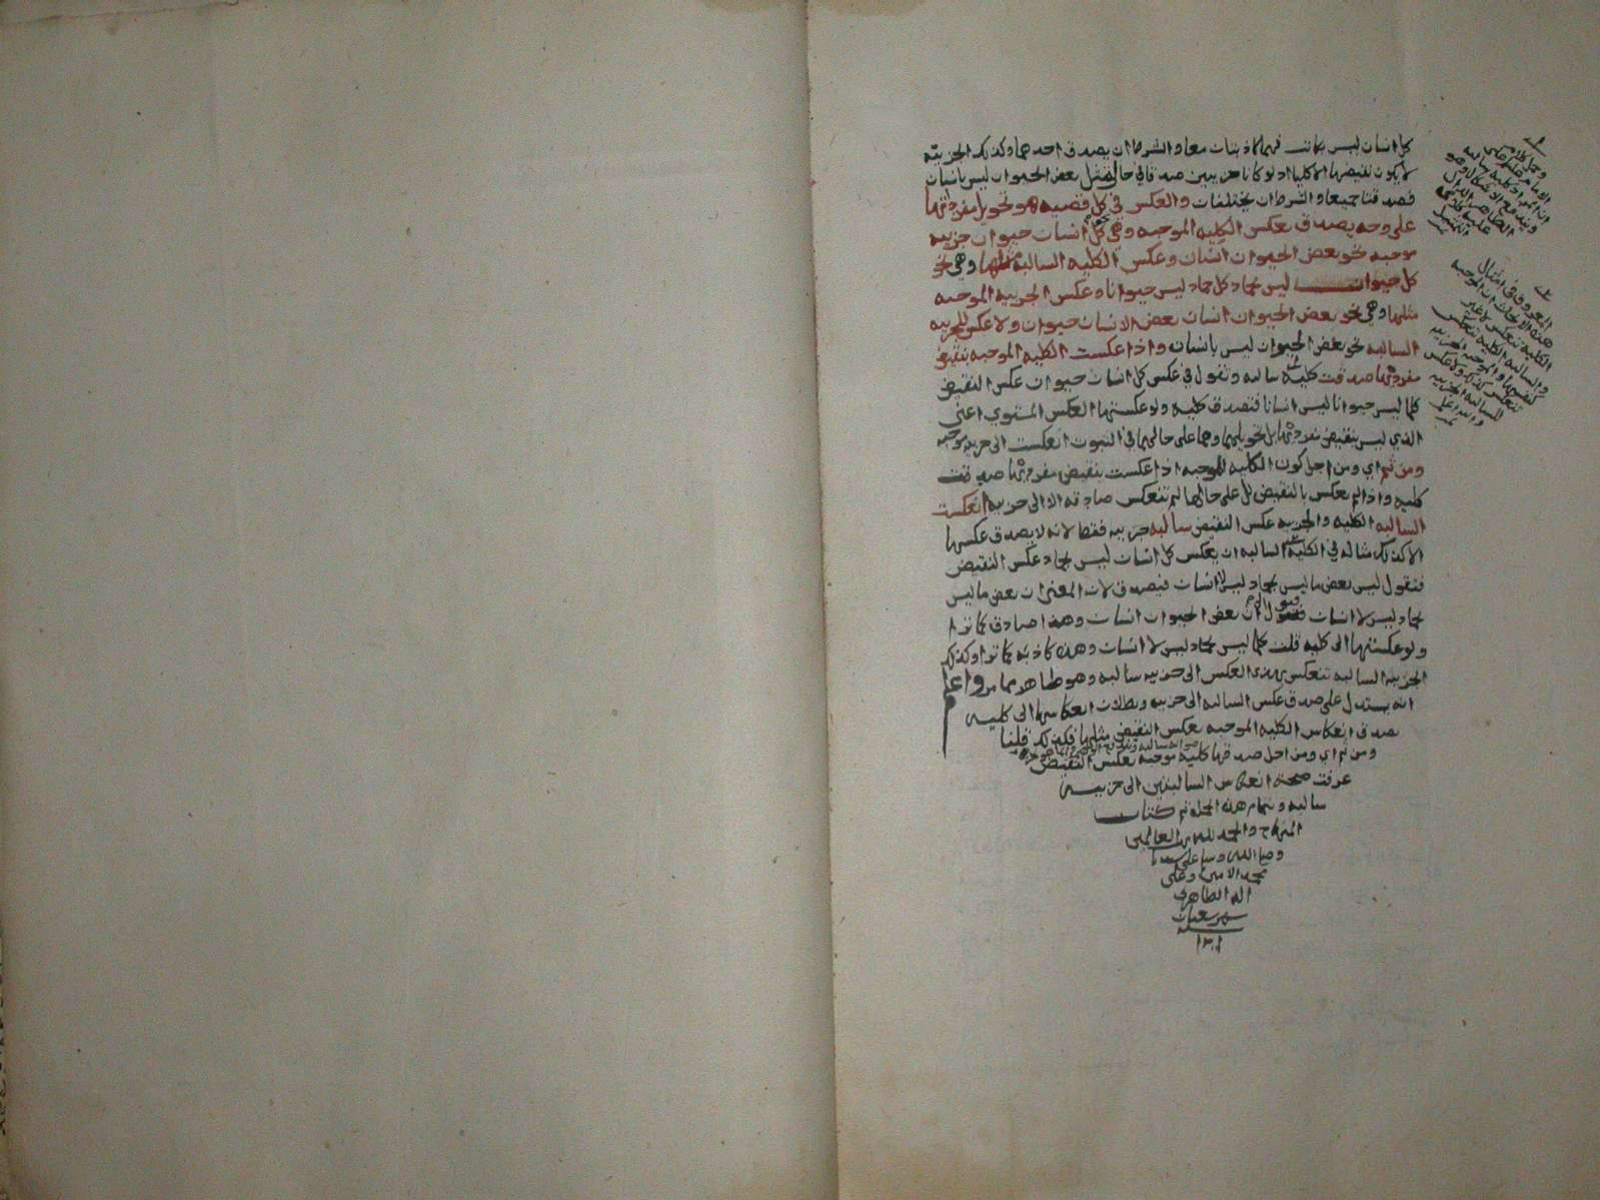 كل انسان ليس بكاتب فهما كاذبتان معا والشرط ان يصدق احدهما وكذلك الجزييه
لا يكون نقيضها الا كليا اذ لو كانا جزيين صدقا في حال مثل بعض الحيوان ليس بانسان
فصدقتا جميعا والشرط ان يختلفان والعكس في كل قضيه هو تحويل مفرديها
على وجه يصدق بعكس الكليه الموجبه وهي كل انسان حيوان جزييه
موجبه نحو بعض الحيوان انسان وعكس الكليه السالبه مثلها وهي نحو
كل حيوان ليس بجماد كل جماد ليس حيوانا وعكس الجزييه الموجبه
مثلها وهي نحو بعض الحيوان انسان بعض الانسان حيوان ولا عكس للجزييه
السالبه نحو بعض الحيوان ليس بانسان واذا عكست الكليه الموجبه بنقيض
مفرديها صدقت كليه سالبه وتقول في عكس كل انسان حيوان عكس النقيض
كلما ليس حيوانا ليس انسانا فتصدق كليه ولو عكستها العكس المستوي اعني
الذي ليس بنقيض مفرديها بل تحويلهما وهما على حالهما في الثبوت انعكست الى جزييه موجبه
ومن ثم اي ومن اجل كون الكليه الموجبه اذا عكست بنقيض مفرديها صدقت
كليه واذا لم يعكس بالنقيض بل على حالها لم تنعكس صادقه الا الى جزييه انعكست
السالبه الكليه والجزييه عكس النقيض سالبه جزييه فقط لانه لا يصدق عكسها
الا كذلك مثاله في الكليه السالبه ان يعكس كل انسان ليس بجماد عكس النقيض
فتقول ليس بعض ما ليس بجماد ليس لا انسان فيصدق لان المعنى ان بعض ما ليس
بجماد ليس لا انسان فهو ان بعض الحيوان انسان وهذا صادق كما ترا
ولو عكستها الى كليه قلت كلما ليس بجماد ليس لا انسان وهذه كاذبه كما ترا وكذلك
الجزييه السالبه تنعكس بهذى العكس الى جزييه سالبه وهو ظاهر مما مر واعلم
انه يستدل على صدق عكس السالبه الى جزييه وبطلان انعكاسها الى كليه
بصدق انعكاس الكليه الموجبه بعكس النقيض مثلها فكذلك قلنا
ومن ثم اي ومن اجل صدقها كليه موجبه بعكس النقيض
عرفت صحة انعكاس السالبتين الى جزييه
سالبه وبتمام هذه الجمله تم كتاب
المنهاج والحمد لله رب العالمين
وصلى الله وسلم على سيدنا
محمد الامين وعلى
اله الطاهرين
شهر شعبان
سنه
١٣٠١
المعروف في امثال
هذه الابحاث ان الموجبه
الكليه تنعكس
والسالبه الكليه تنعكس
كنفسها والموجبه الجزييه
تنعكس كذلك ولا عكس
للسالبه الجزييه
والله اعلم